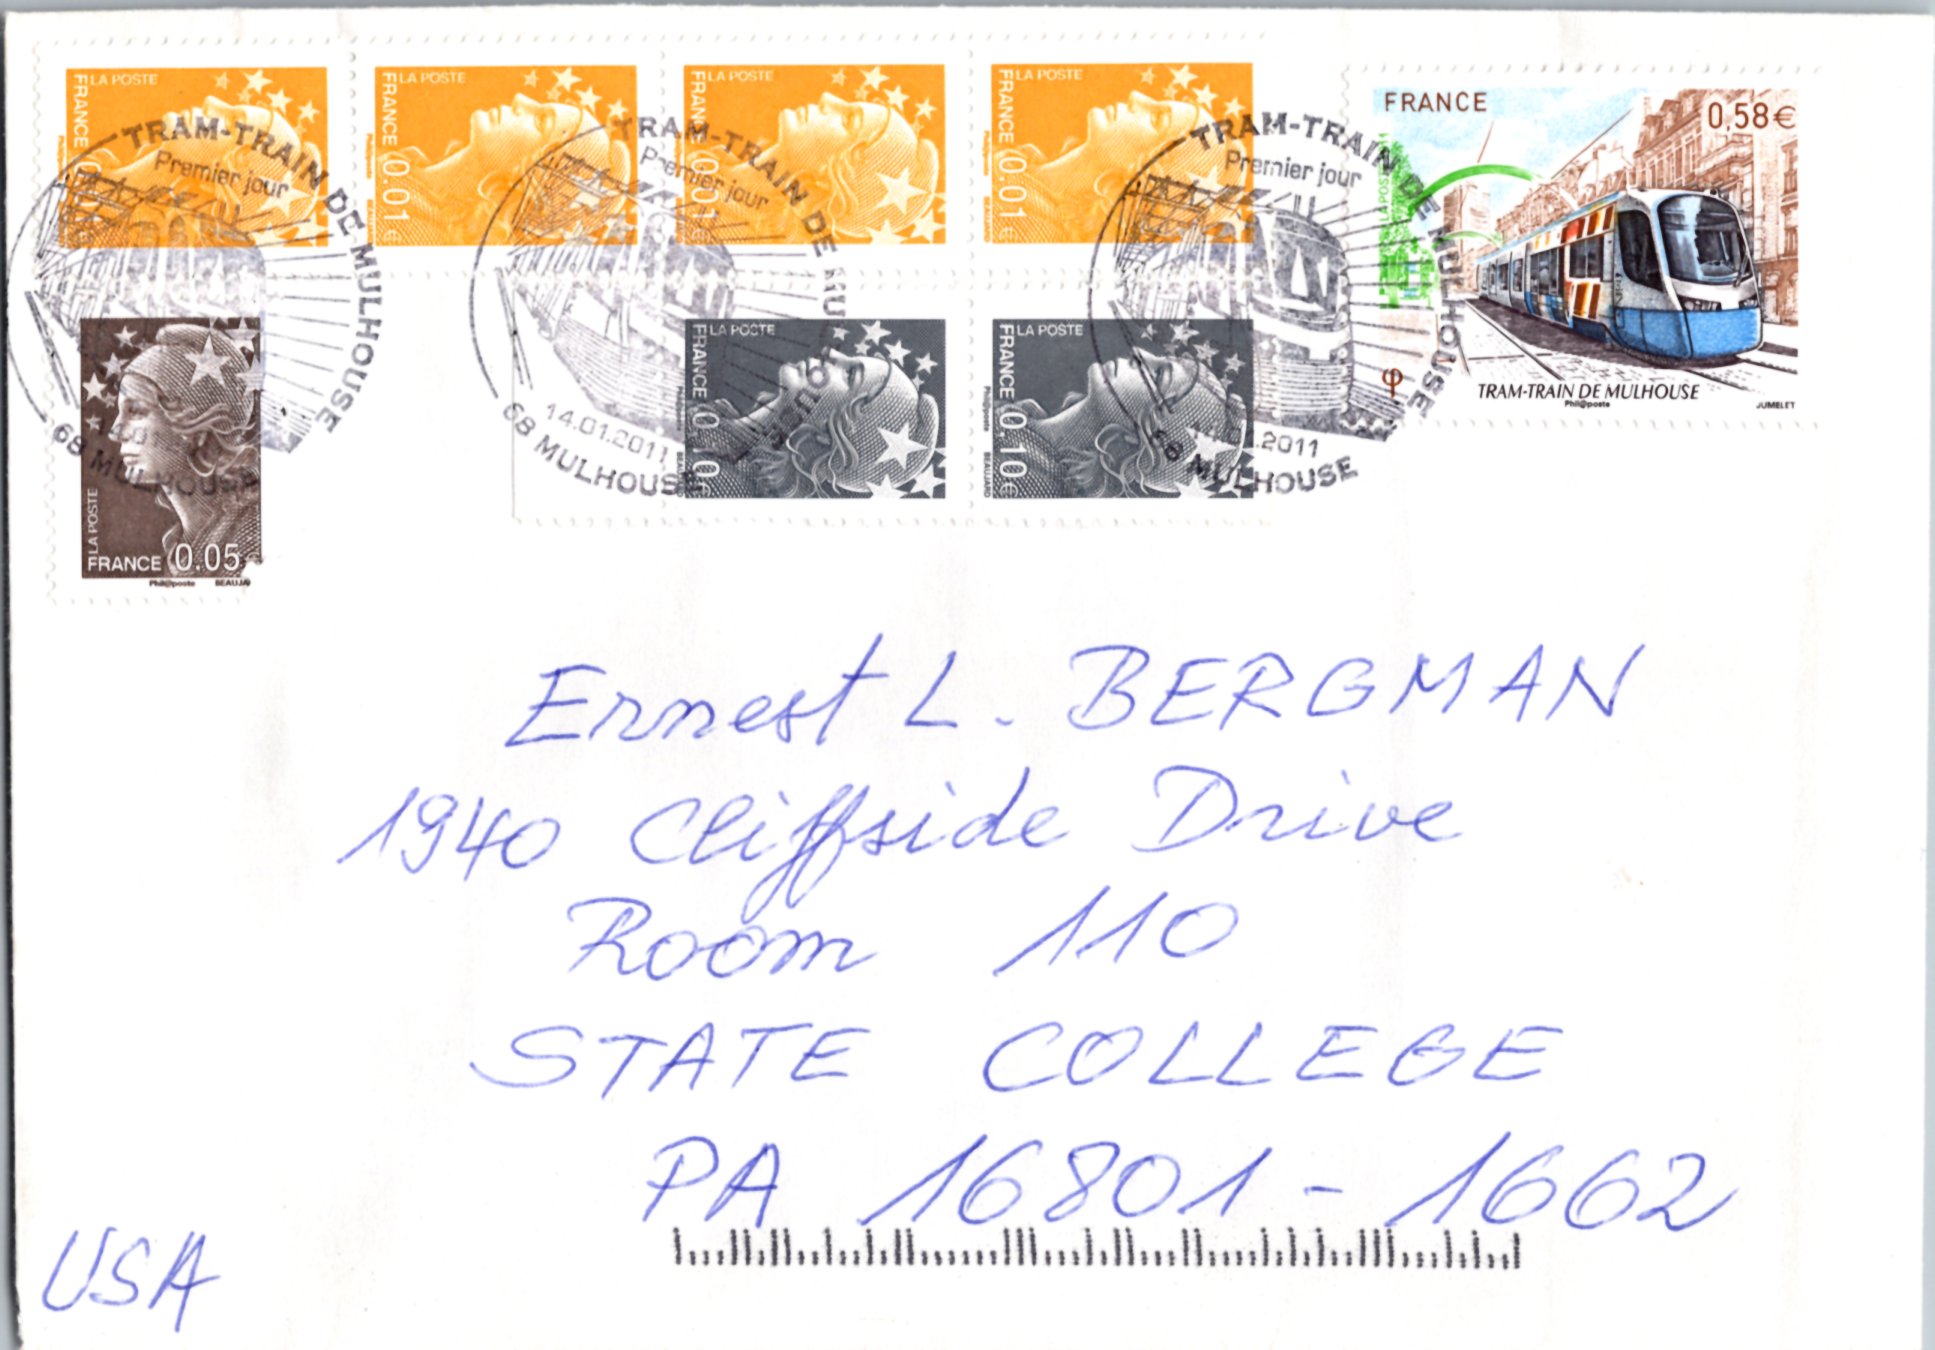 LA POSTE
FRANCE
LA POSTE
FRANCE 0.01€
LA POSTE
FRANCE 0.01
LA POSTE
FRANCE 0.01€
FRANCE 0,58€
LA POSTE
TRAM-TRAIN DE MULHOUSE
Phil@poste
JUMELET
TRAM-TRAIN DE MULHOUSE
Premier jour
68 MULHOUSE
TRAM-TRAIN DE MULHOUSE
Premier jour
14.01.2011
68 MULHOUSE
TRAM-TRAIN DE MULHOUSE
Premier jour
2011
68 MULHOUSE
LA POSTE
FRANCE 0.05€
Phil@poste
LA POSTE
FRANCE
BEAUJARD
LA POSTE
FRANCE 0.10€
Phil@poste
BEAUJARD
Ernest L. BERGMAN
1940 Cliffside Drive
Room 110
STATE COLLEGE
PA 16801-1662
USA